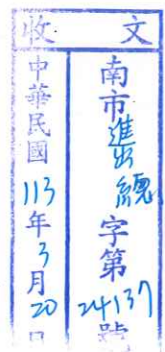 收文
南市進出總字第24137號
中華民國113年3月20日